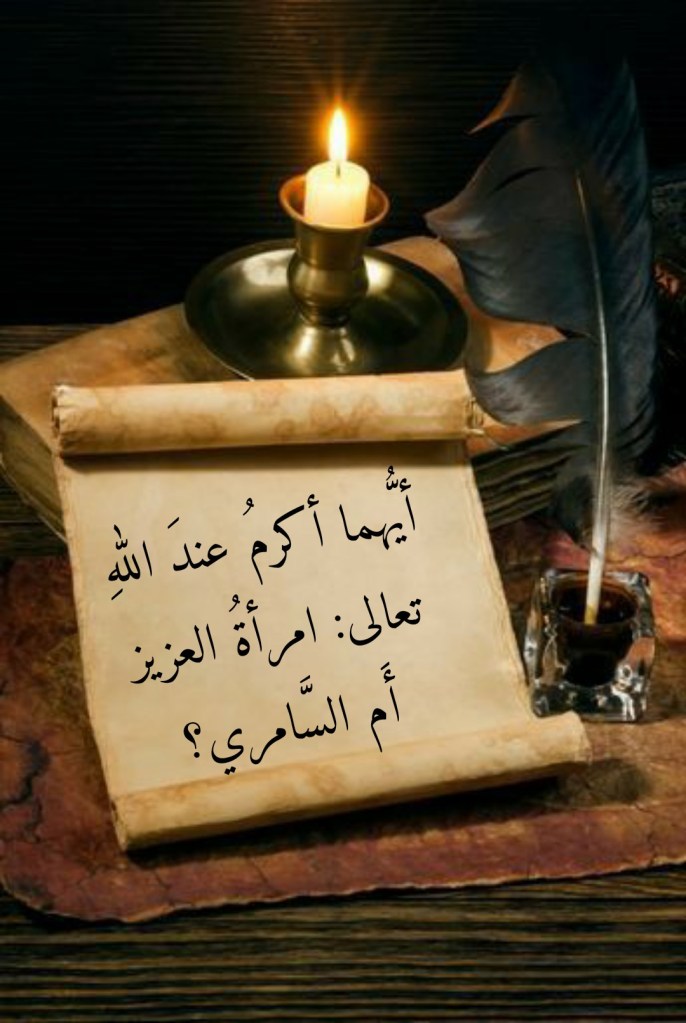 أيُّهما أكرمُ عندَ اللهِ
تعالى: امرأةُ العزيز
أَم السَّامري؟